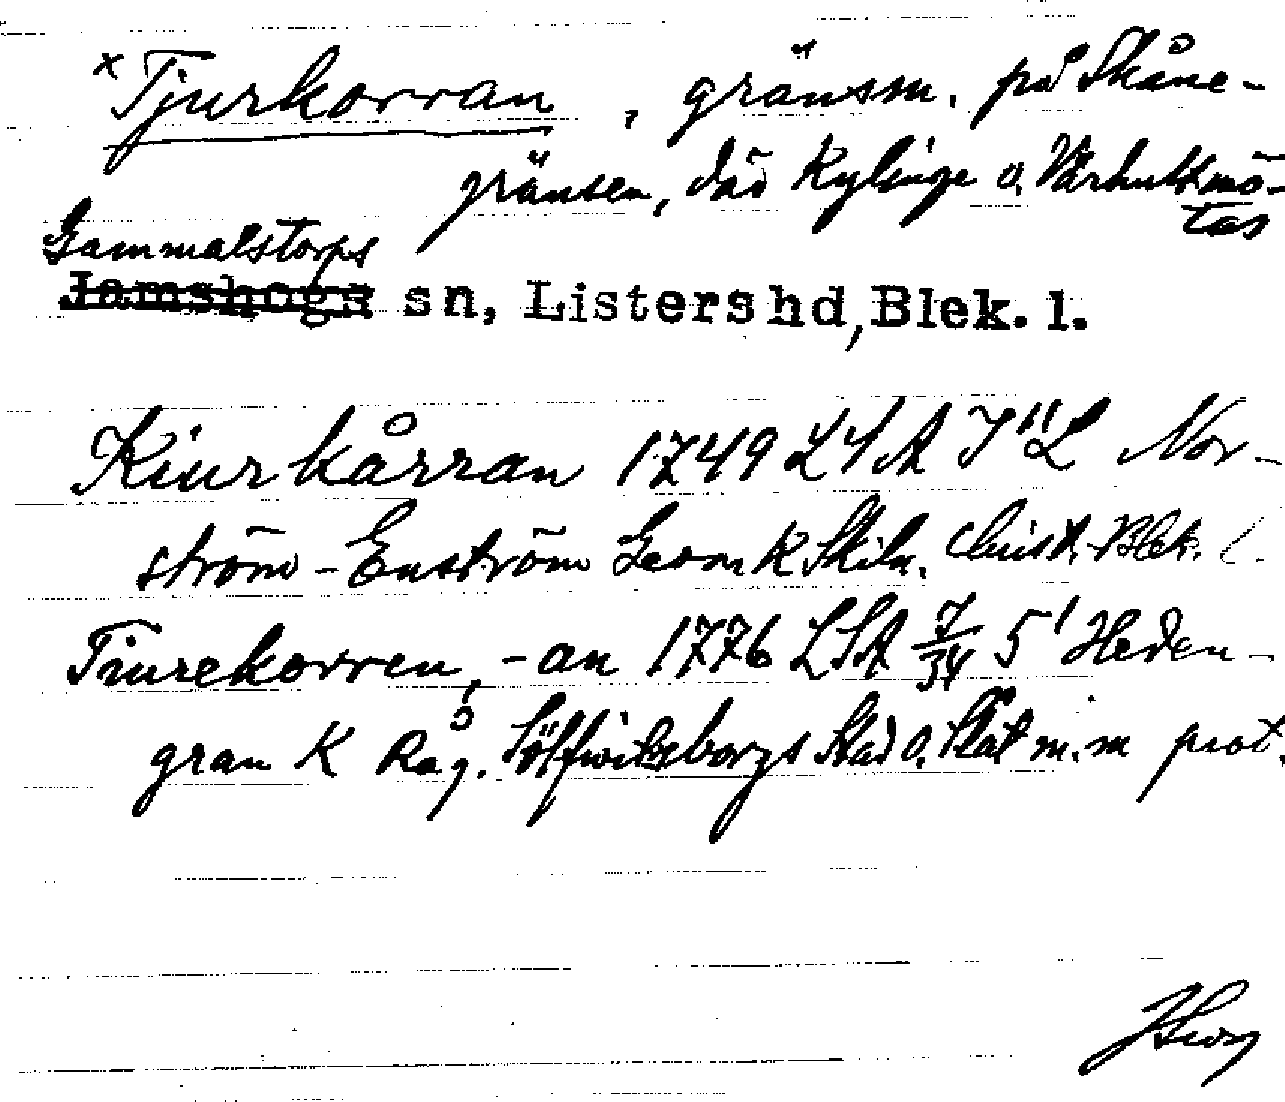 x Tjurkorran, gränsm. på Skåne-
gränsen, där Rylinge o. Vårhult mö-
tas
Gammalstorps
Jämshögs sn, Listers hd, Blek. l.
Kiurkårran 1749 LSA I"L Nor-
ström-Enström Geom K Skiln. Christ.-Blek. l.
Tiurekorren, -an 1776 LSA 7/34 5' Heden-
gran K Råg. Sölfwitsborgs Stad o. Slät m.m prot.